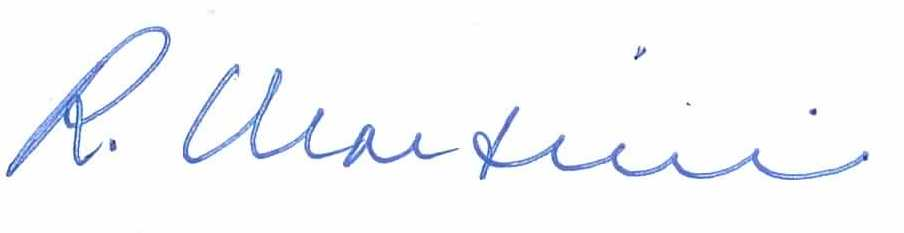 R. Martini